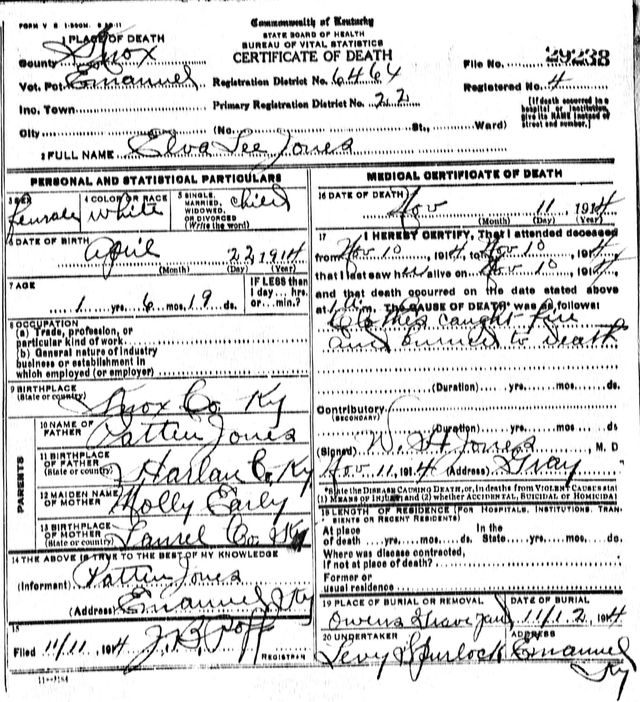 FORM V S 1-500M. 8 20-11
Commonwealth of Kentucky
STATE BOARD OF HEALTH
BUREAU OF VITAL STATISTICS
CERTIFICATE OF DEATH
1 PLACE OF DEATH
County Knox
Vot. Pct. Emanuel Registration District No. 6464
Inc. Town Primary Registration District No. 22
City (No. St., Ward)
File No. 29238
Registered No. 4
[If death occurred in a hospital or institution, give its NAME instead of street and number.]
2 FULL NAME Elva Lee Jones
PERSONAL AND STATISTICAL PARTICULARS
3 SEX female
4 COLOR OR RACE white
5 SINGLE, MARRIED, WIDOWED, OR DIVORCED (Write the word) child
6 DATE OF BIRTH
April 22, 1914
(Month) (Day) (Year)
7 AGE
1 yrs. 6 mos. 19 ds.
IF LESS than 1 day... hrs. or... min.?
8 OCCUPATION
(a) Trade, profession, or particular kind of work
(b) General nature of industry business or establishment in which employed (or employer)
9 BIRTHPLACE (State or country) Knox Co. Ky
PARENTS
10 NAME OF FATHER Patten Jones
11 BIRTHPLACE OF FATHER (State or country) Harlan Co. Ky
12 MAIDEN NAME OF MOTHER Molly Early
13 BIRTHPLACE OF MOTHER (State or country) Laurel Co. Ky
14 THE ABOVE IS TRUE TO THE BEST OF MY KNOWLEDGE
(Informant) Patten Jones
(Address) Emanuel Ky
15
Filed 11/11, 1914
REGISTRAR
MEDICAL CERTIFICATE OF DEATH
16 DATE OF DEATH
Nov 11, 1914
(Month) (Day) (Year)
17 I HEREBY CERTIFY, That I attended deceased
from Nov 10, 1914, to Nov 10, 1914,
that I last saw h alive on Nov 10, 1914,
and that death occurred on the date stated above
at 1 m. The CAUSE OF DEATH* was as follows:
Clothes caught fire
and burned to death
(Duration) yrs. mos. ds.
Contributory (SECONDARY)
(Duration) yrs. mos. ds
(Signed) W. H. Jones, M. D
Nov. 11, 1914 (Address) Gray
*State the DISEASE CAUSING DEATH, or, in deaths from VIOLENT CAUSES state (1) MEANS OF INJURY; and (2) whether ACCIDENTAL, SUICIDAL or HOMICIDAL
18 LENGTH OF RESIDENCE (FOR HOSPITALS, INSTITUTIONS, TRANSIENTS OR RECENT RESIDENTS)
At place of death yrs. mos. ds. In the State yrs. mos. ds.
Where was disease contracted, if not at place of death?
Former or usual residence
19 PLACE OF BURIAL OR REMOVAL Owens Grave Yard
DATE OF BURIAL 11/12, 1914
20 UNDERTAKER Levy Spurlock
ADDRESS Emanuel Ky